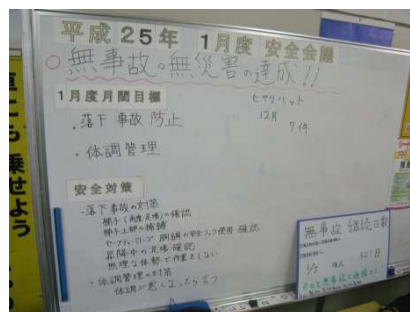 平成25年 1月度 安全会議
○無事故。無災害の達成!!
1月度月間目標
・落下事故防止
・体調管理
ヒヤリハット
12月
7件
安全対策
・落下事故の対策
梯子(角度足場)の確認
梯子上部の捕縛
胴綱の安全フック使用確認
昇降中の足場確認
無理な体勢で作業をしない
・体調管理の対策
体調が悪くなったら言う
無事故 継続日数
1/5 現在 321日
乗せよう